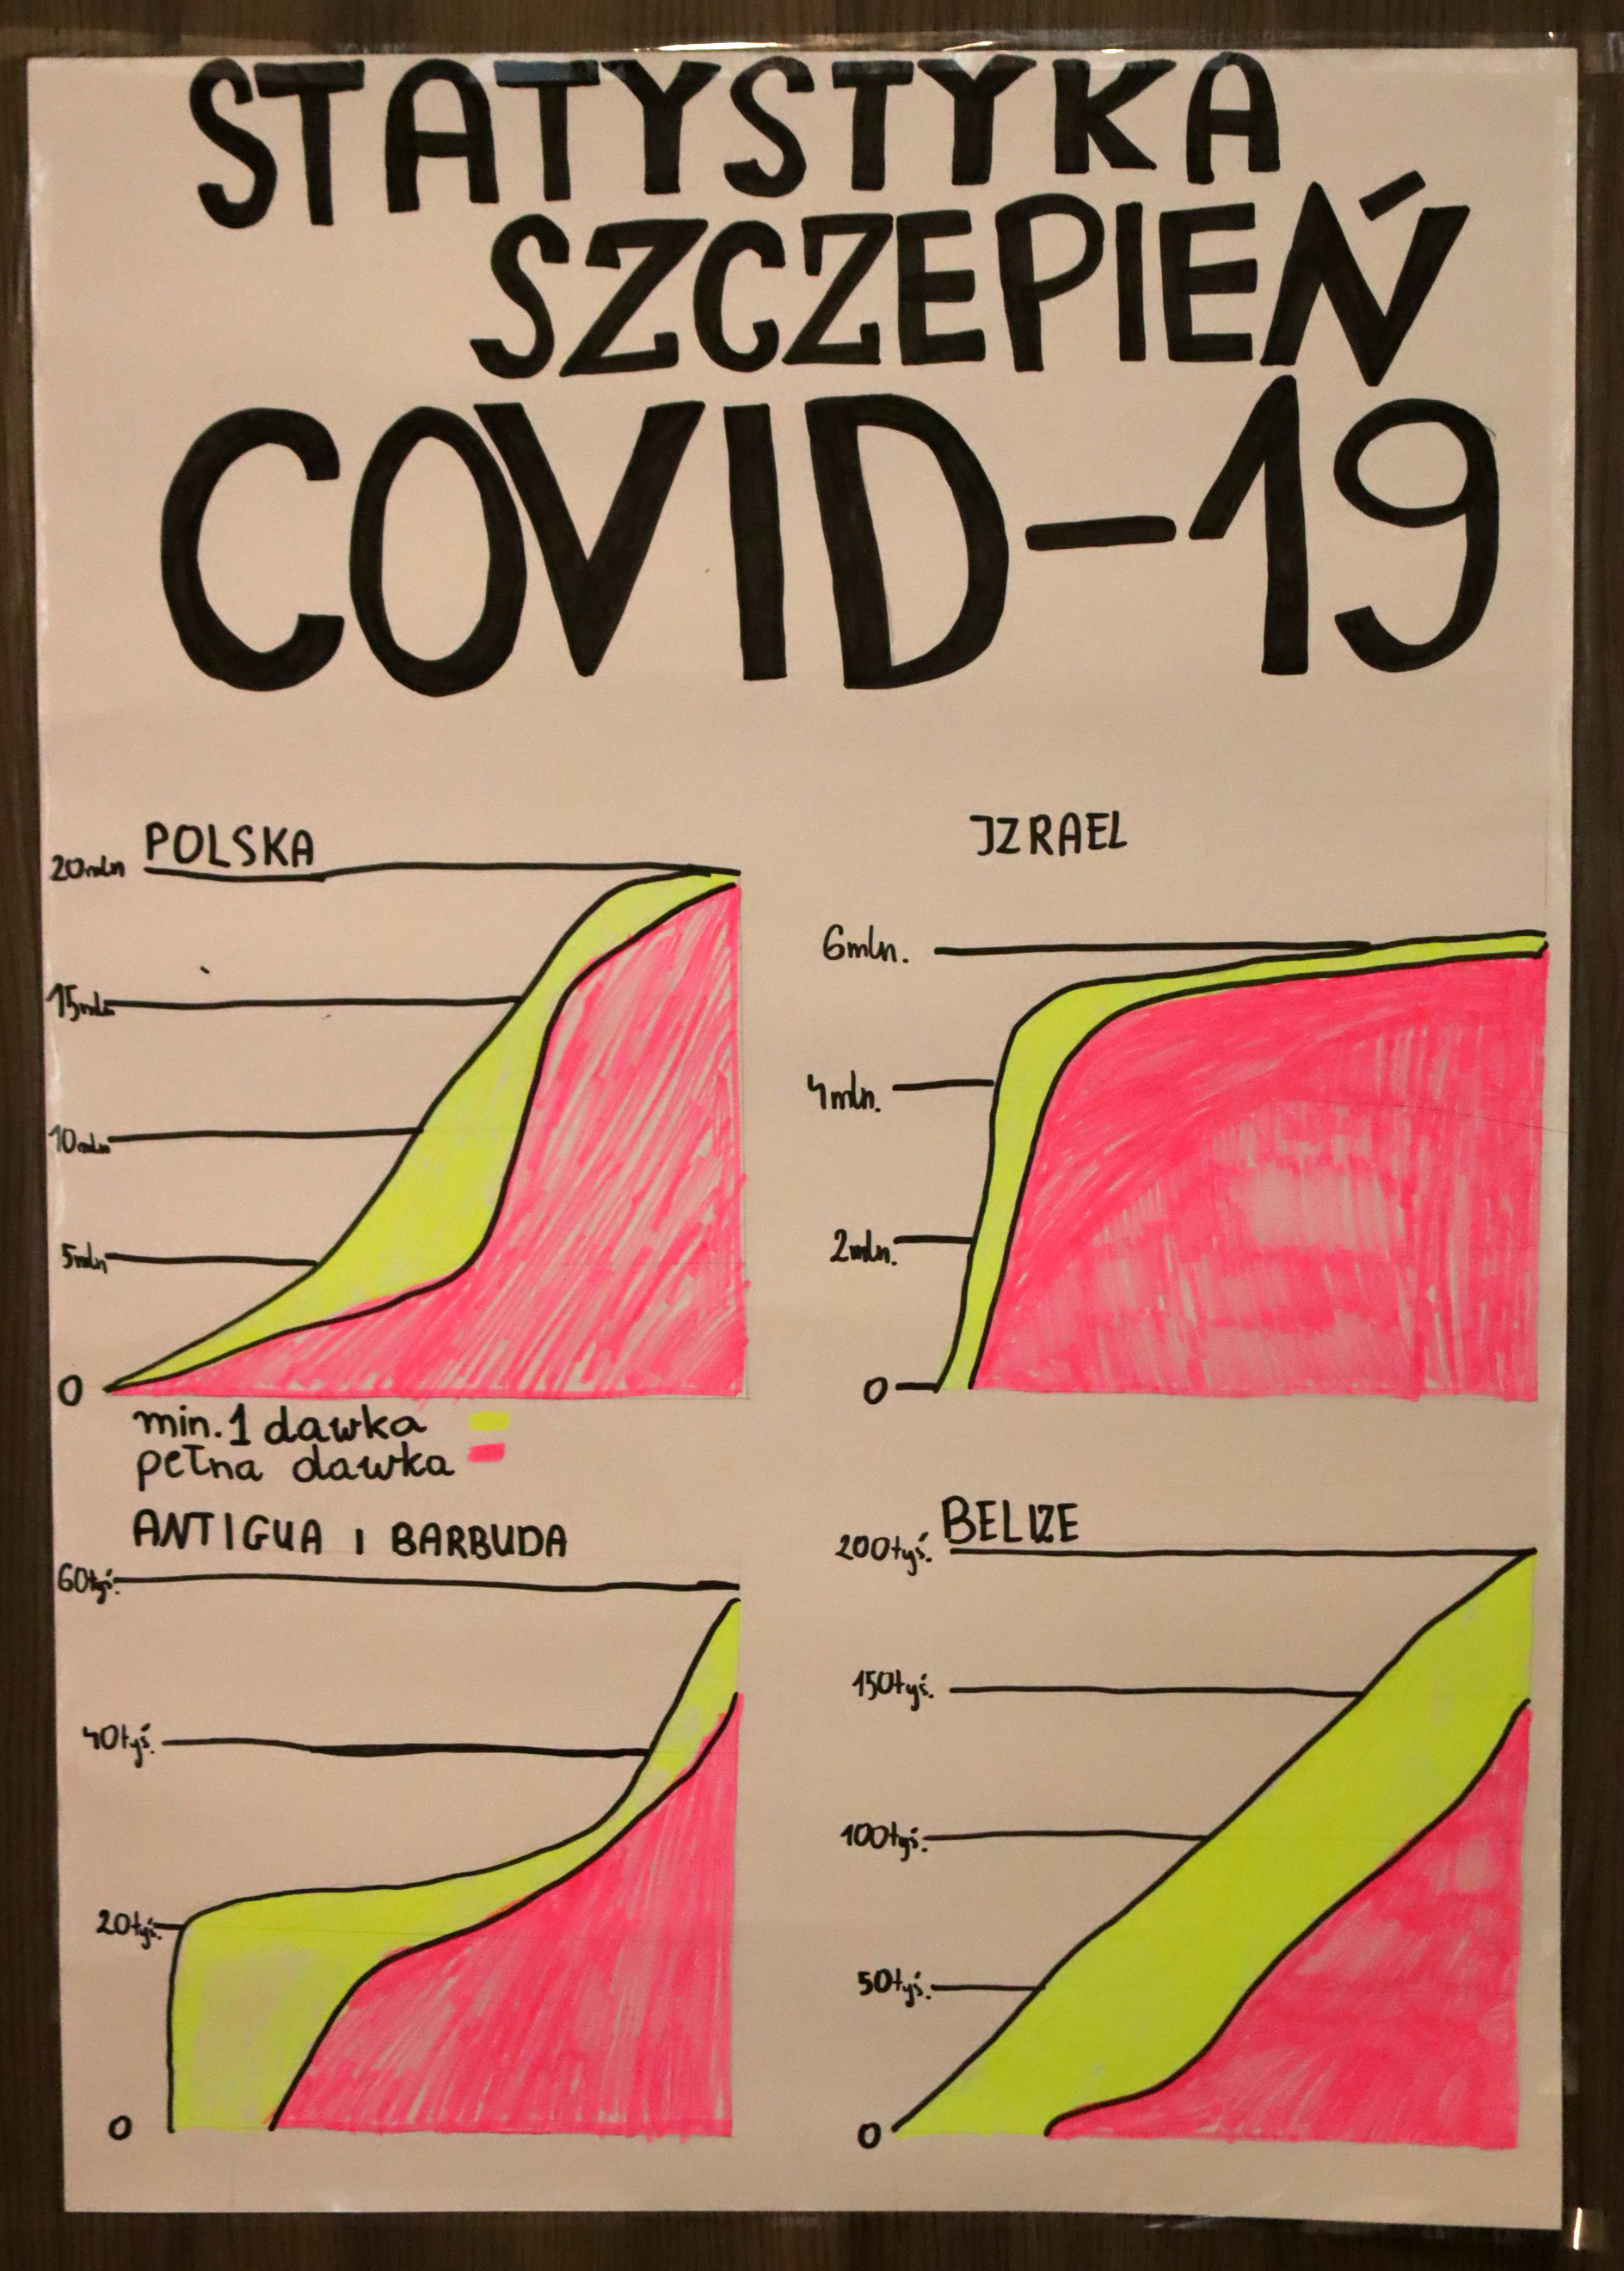 STATYSTYKA
SZCZEPIEŃ
COVID-19
POLSKA
20mln
15mln
10mln
5mln
0
min. 1 dawka
pełna dawka
IZRAEL
6mln.
4mln.
2mln.
0
ANTIGUA I BARBUDA
60tyś.
40tyś.
20tyś.
0
BELIZE
200tyś.
150tyś.
100tyś.
50tyś.
0